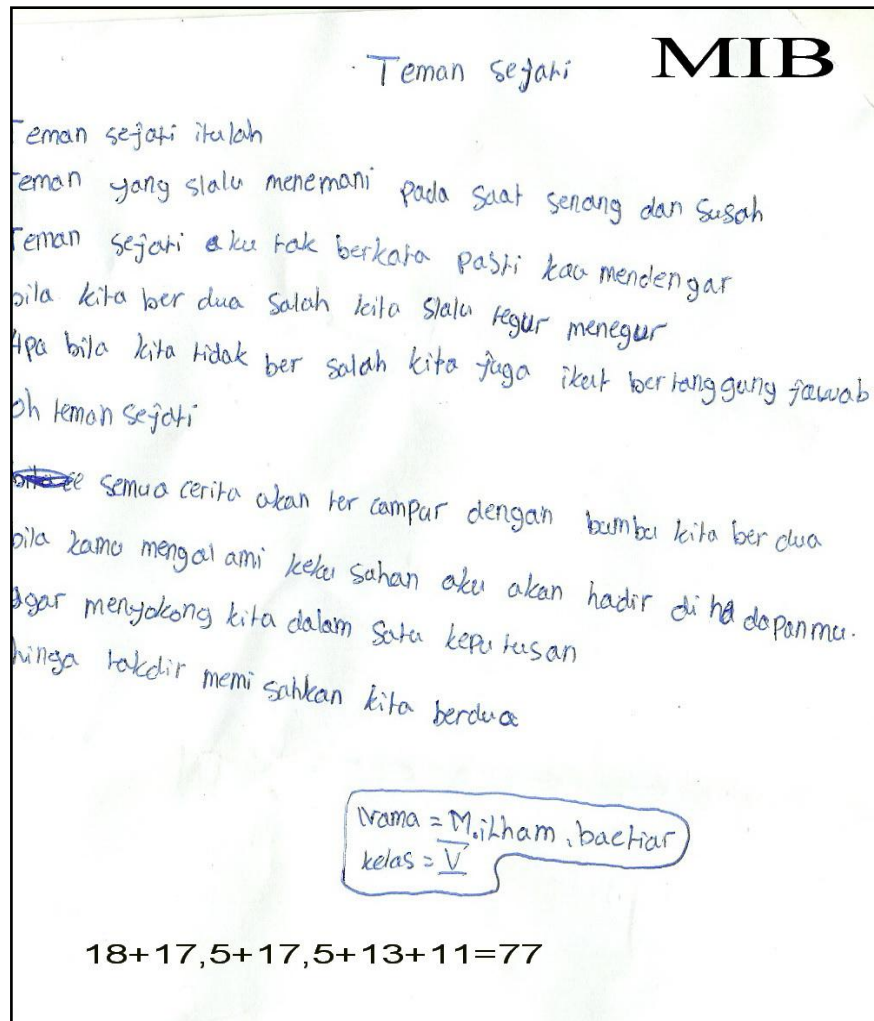 Teman sejati MIB
Teman sejati itulah
Teman yang slalu menemani pada saat senang dan susah
Teman sejati aku tak berkata pasti kau mendengar
bila kita ber dua salah kita slalu tegur menegur
Apa bila kita tidak ber salah kita juga ikut bertanggung jawab
oh teman sejati
semua cerita akan ter campur dengan bumbu kita ber dua
bila kamu mengal ami keku sahan aku akan hadir di ha dapanmu.
agar menyokong kita dalam satu kepu tusan
hinga takdir memi sahkan kita berdua
Nama = M.ilham.bactiar
kelas = V
18+17,5+17,5+13+11=77